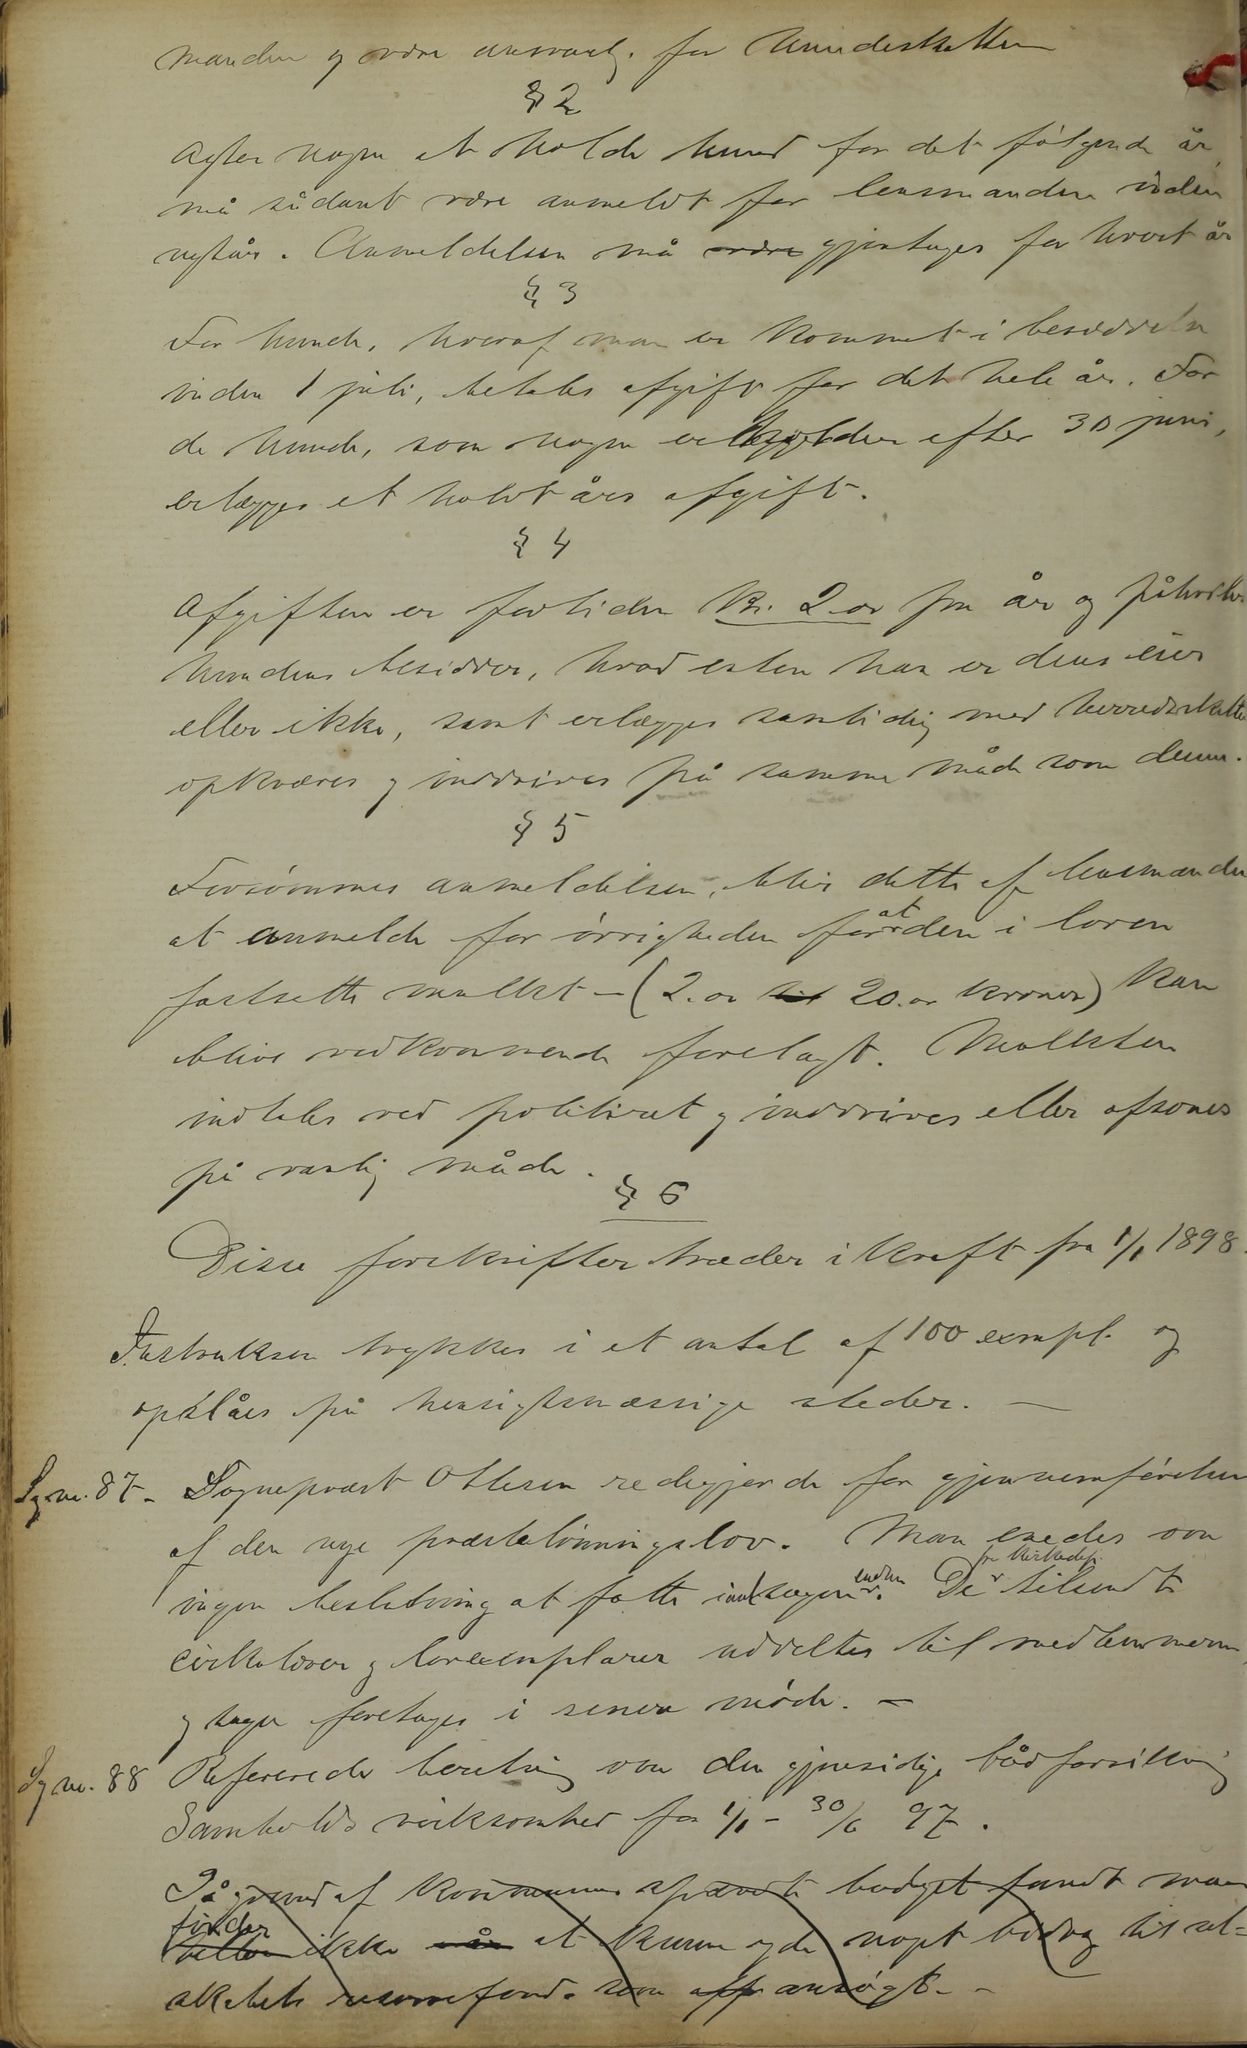 manden og være ansvarlg. for hundeskatten
§ 2
Agter nogen at holde hund for det følgende år
må sådant være anmeldt for lensmanden inden
nytår. Anmeldelsen må være gjentages for hvert år
§ 3
For hunde, hvoraf man er kommet i besiddelse
inden 1 juli, betales afgift for det hele år. For
de hunde, som nogen erholder efter 30 juni,
erlægges et halvt års afgift.
§ 4
Afgiften er fortiden Kr. 2.00 pr år og påhviler
hundens besidder, hvad enten han er dens eier
eller ikke, samt erlægges samtidig med herredsskatten
opkræves og inddrives på samme måde som denne.
§ 5
Forsømmes anmeldelsen, blir dette af lensmanden
at anmelde for øvrigheden for at den i loven
fastsatte mulkt – (2.00 til 20.00 kroner) kan
blive vedkommende forelagt. Mulkten
indtales ved politiret og inddrives eller afsones
på vanlig måde.
§ 6
Disse forskrifter træder i kraft fra 1/1 1898.
Instruksen trykkes i et antal af 100 exempl. og
opslåes på hensigtsmæssige steder. —
Sg nr. 87 - Sognepræst Ottesen redegjorde for gjennemførelsen
af den nye præstelønningslov. Man enedes om
ingen beslutning at fatte i sagen endnu. De fra kirkedep. tilsendte
cirkulærer og lovexemplarer uddeltes til medlemmerne
og sagen foretages i senere møde. –
Sg nr. 88 Refereredes beretning om den gjensidige båtforsikring
Samholds virksomhed for 1/1 - 30/6 97.
På grund af kommunens budget fandt man
finder ikke at kunne yde noget bidrag til sel-
skabets reservefond. som ansøgt. -